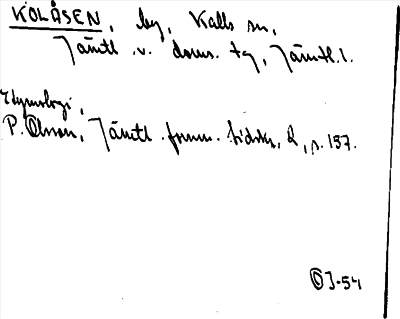 KOLÅSEN, by, Kalls sn,
Jämtl. v. doms. tg, Jämtl. l.
Etymologi,
P. Olsson, Jämtl. fornm. tidskr, 2, s. 157.
J-54